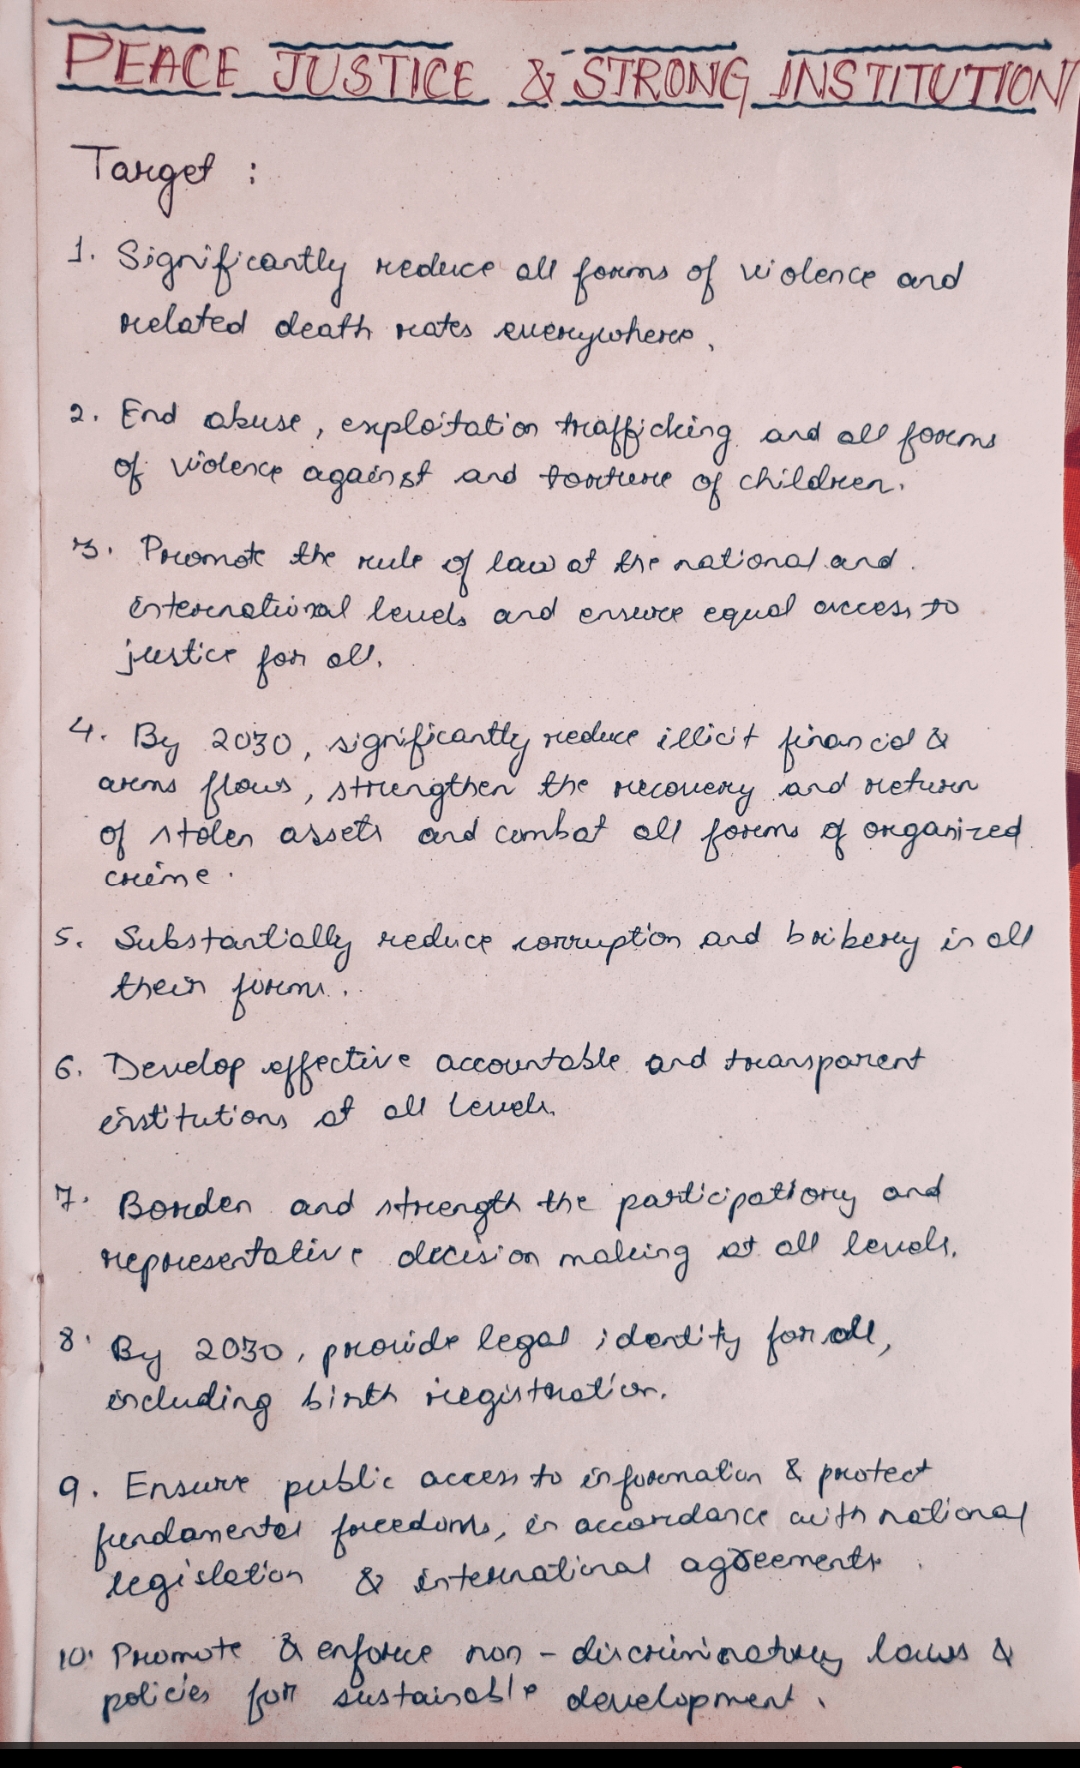 PEACE JUSTICE & STRONG INSTITUTION
Target :
1. Significantly reduce all forms of violence and
related death rates everywhere.
2. End abuse, exploitation trafficking and all forms
of violence against and torture of children.
3. Promote the rule of law at the national and
international levels and ensure equal access to
justice for all.
4. By 2030, significantly reduce illicit financial &
arms flows, strengthen the recovery and return
of stolen assets and combat all forms of organized
crime.
5. Substantially reduce corruption and bribery in all
their forms.
6. Develop effective accountable and transparent
institutions at all levels.
7. Borden and strength the participatiory and
representative decision making at all levels.
8. By 2030, provide legal identity for all,
including birth registration.
9. Ensure public access to information & protect
fundamental freedoms, in accordance with national
legislation & international agreements.
10. Promote & enforce non-discriminatory laws &
policies for sustainable development.